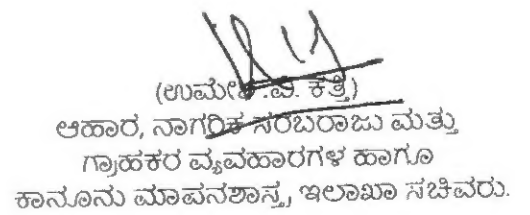 (ಉಮೇಶ .ವಿ. ಕತ್ತಿ)
ಆಹಾರ, ನಾಗರಿಕ ಸರಬರಾಜು ಮತ್ತು
ಗ್ರಾಹಕರ ವ್ಯವಹಾರಗಳ ಹಾಗೂ
ಕಾನೂನು ಮಾಪನಶಾಸ್ತ್ರ ಇಲಾಖಾ ಸಚಿವರು.